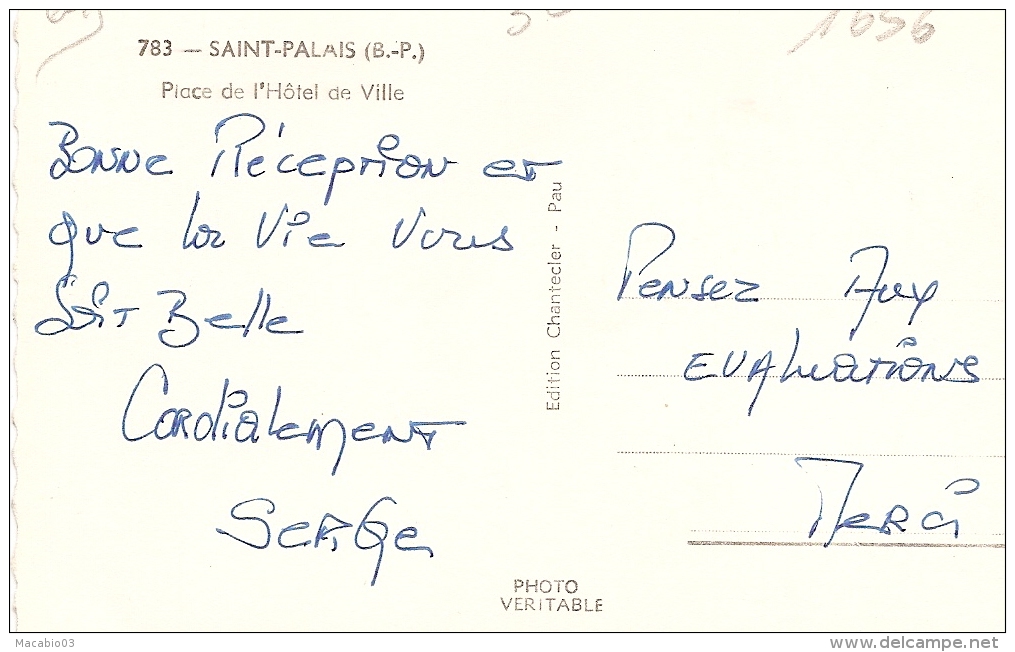 1656
783 — SAINT-PALAIS (B.-P.)
Place de l'Hôtel de Ville
Bonne Réception et
que la Vie Vous
Soit Belle
Cordialement
Serge
Edition Chantecler - Pau
Pensez Aux
EVALuations
Merci
PHOTO
VERITABLE
Macabio03
delcampe.net